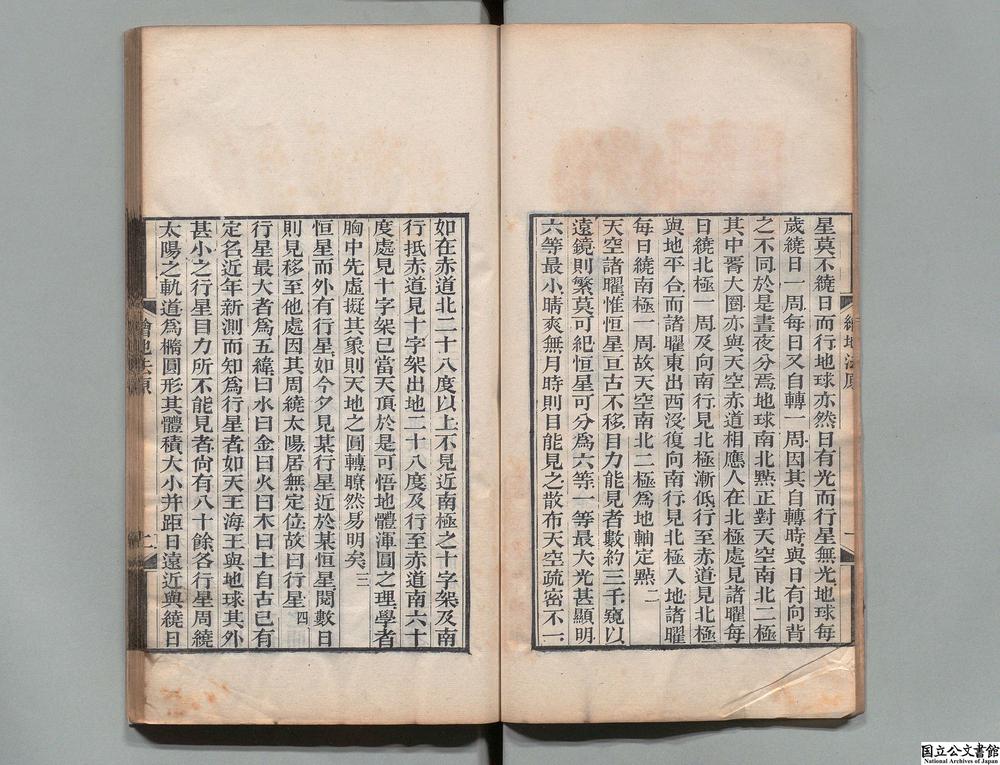 星莫不繞日而行地球亦然日有光而行星無光地球每
歲繞日一周每日又自轉一周因其自轉時與日有向背
之不同於是晝夜分焉地球南北㸃正對天空南北二極
其中署大圈亦與天空赤道相應人在北極處見諸曜每
日繞北極一周及向南行見北極漸低行至赤道見北極
與地平合而諸曜東出西沒復向南行見北極入地諸曜
每日繞南極一周故天空南北二極為地軸定㸃二
天空諸曜惟恒星亘古不移目力能見者數約三千窺以
遠鏡則繁莫可紀恒星可分為六等一等最大光甚顯明
六等最小晴爽無月時則目能見之散布天空疏密不一
繪地法原
一
如在赤道北二十八度以上不見近南極之十字架及南
行抵赤道見十字架出地二十八度及行至赤道南六十
度處見十字架已當天頂於是可悟地體渾圓之理學者
胸中先虛擬其象則天地之圓轉瞭然易明矣三
恒星而外有行星如今夕見某行星近於某恒星閱數日
則見移至他處因其周繞太陽居無定位故曰行星四
行星最大者為五緯曰水曰金曰火曰木曰土自古已有
定名近年新測而知為行星者如天王海王與地球其外
甚小之行星目力所不能見者尙有八十餘各行星周繞
太陽之軌道為橢圓形其體積大小并距日遠近與繞日
繪地法原
国立公文書館
National Archives of Japan